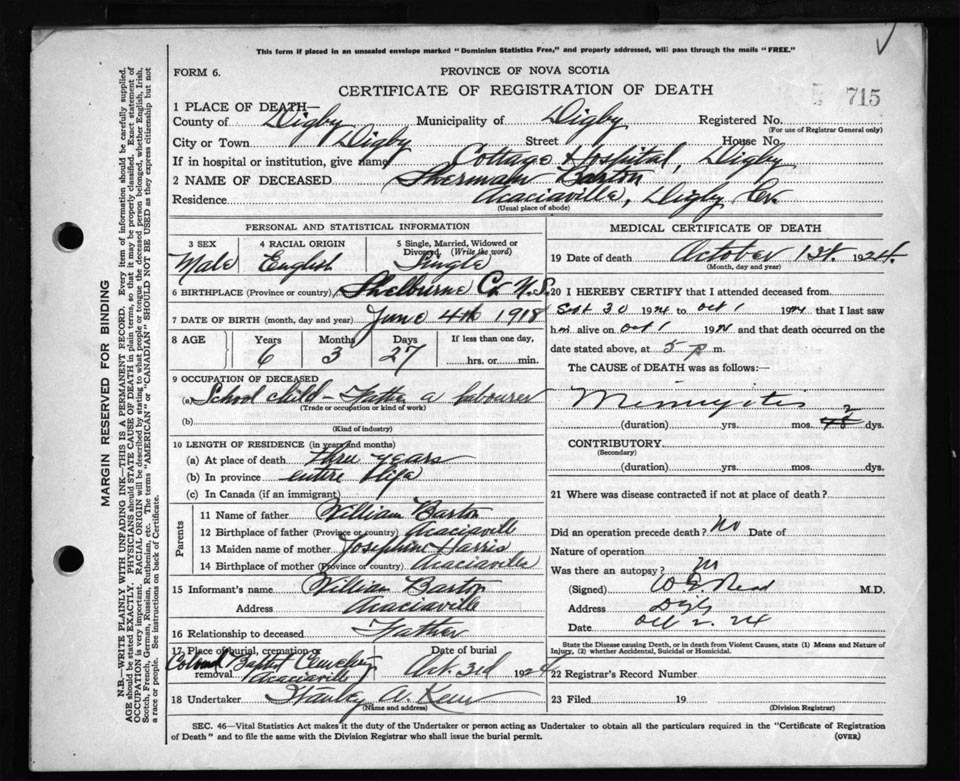 This form if placed in an unsealed envelope marked "Dominion Statistics Free," and properly addressed, will pass through the mails "FREE."
FORM 6.
PROVINCE OF NOVA SCOTIA
CERTIFICATE OF REGISTRATION OF DEATH
715
1 PLACE OF DEATH—
County of Digby Municipality of Digby Registered No.
(For use of Registrar General only)
City or Town Digby Street House No.
If in hospital or institution, give name Cottage Hospital, Digby
2 NAME OF DECEASED Sherman Barton
Residence Acaciaville, Digby Co.
(Usual place of abode)
PERSONAL AND STATISTICAL INFORMATION
3 SEX 4 RACIAL ORIGIN 5 Single, Married, Widowed or Divorced (Write the word)
Male English Single
6 BIRTHPLACE (Province or country) Shelburne Co. N.S.
7 DATE OF BIRTH (month, day and year) June 4th 1918
8 AGE Years Months Days If less than one day,
6 3 27 hrs. or min.
9 OCCUPATION OF DECEASED
(a) School child - Father a labourer
(Trade or occupation or kind of work)
(b)
(Kind of industry)
10 LENGTH OF RESIDENCE (in years and months)
(a) At place of death three years
(b) In province entire life
(c) In Canada (if an immigrant)
Parents
11 Name of father William Barton
12 Birthplace of father (Province or country) Acaciaville
13 Maiden name of mother Josephine Harris
14 Birthplace of mother (Province or country) Acaciaville
15 Informant's name William Barton
Address Acaciaville
16 Relationship to deceased Father
17 Place of burial, cremation or removal Date of burial
Colored Baptist Cemetery Acaciaville Oct. 3rd 1924
18 Undertaker Stanley A.
(Name and address)
MEDICAL CERTIFICATE OF DEATH
19 Date of death October 1st. 1924.
(Month, day and year)
20 I HEREBY CERTIFY that I attended deceased from
Sept 30 1924 to Oct 1 1924 that I last saw
him alive on Oct 1 1924 and that death occurred on
date stated above, at 5 p m.
The CAUSE of DEATH was as follows:—
Meningitis
(duration) yrs. mos. 2 dys.
CONTRIBUTORY
(Secondary)
(duration) yrs. mos. dys.
21 Where was disease contracted if not at place of death?
Did an operation precede death? No Date of
Nature of operation
Was there an autopsy? No
(Signed) M.D.
Address Digby
Date Oct 2. 24
State the Disease causing Death, or in death from Violent Causes, state (1) Means and Nature of Injury, (2) whether Accidental, Suicidal or Homicidal.
22 Registrar's Record Number
23 Filed 19
(Division Registrar)
SEC. 46—Vital Statistics Act makes it the duty of the Undertaker or person acting as Undertaker to obtain all the particulars required in the "Certificate of Registration
of Death" and to file the same with the Division Registrar who shall issue the burial permit.
(OVER)
MARGIN RESERVED FOR BINDING
N.B.—WRITE PLAINLY WITH UNFADING INK—THIS IS A PERMANENT RECORD. Every item of information should be carefully supplied.
AGE should be stated EXACTLY. PHYSICIANS should STATE CAUSE OF DEATH in plain terms, so that it may be properly classified. Exact statement of
OCCUPATION is very important. RACIAL ORIGIN will be described by stating to what people or tongue the deceased person belonged, whether English, Irish,
Scotch, French, German, Russian, Ruthenian, etc. The terms "AMERICAN" or "CANADIAN" SHOULD NOT BE USED as they express citizenship but not
a race or people. See instructions on back of Certificate.